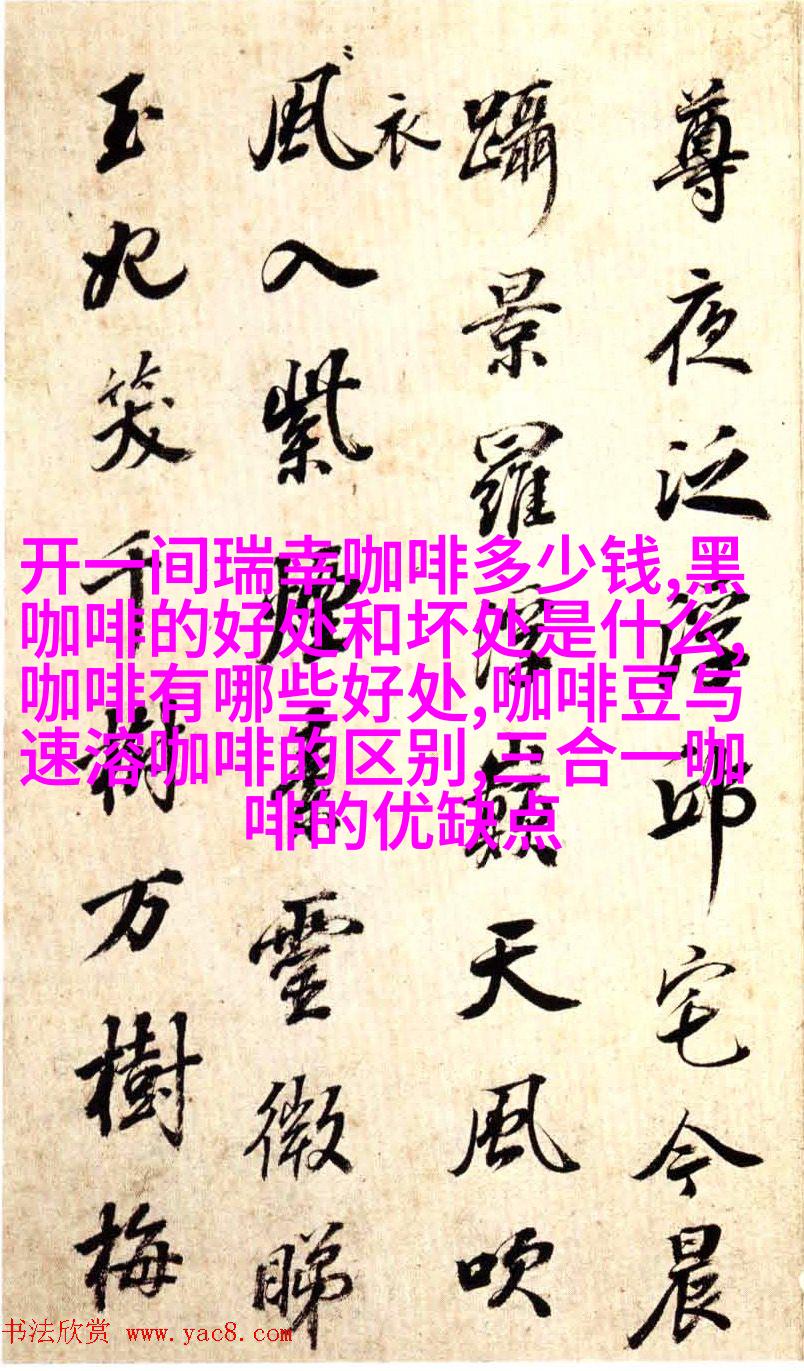 尊夜泛浮邱宅今晨
躡景羅浮巔天風吹
衣
風入紫煙香霊微睇
玉妃笑千樹万樹梅
开一间瑞幸咖啡多少钱,黑
咖啡的好处和坏处是什么,
咖啡有哪些好处,咖啡豆与
速溶咖啡的区别,三合一咖
啡的优缺点
书法欣赏 www.yac8.com